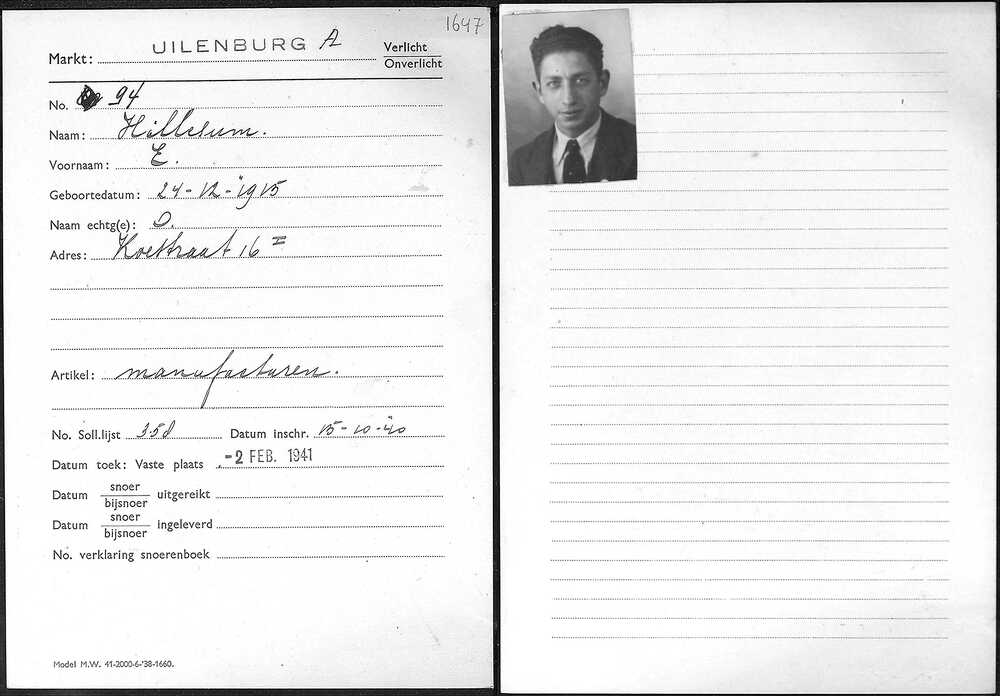 1647
Markt: UILENBURG A
Verlicht
Onverlicht
No. 94
Naam: Hillesum.
Voornaam: E.
Geboortedatum: 24-12-1915
Naam echtg(e):
Adres: Koestraat 16 II
Artikel: manufacturen.
No. Soll.lijst 358 Datum inschr. 15-10-'40
Datum toek: Vaste plaats -2 FEB. 1941
Datum snoer/bijsnoer uitgereikt
Datum snoer/bijsnoer ingeleverd
No. verklaring snoerenboek
Model M.W. 41-2000-6-'38-1660.